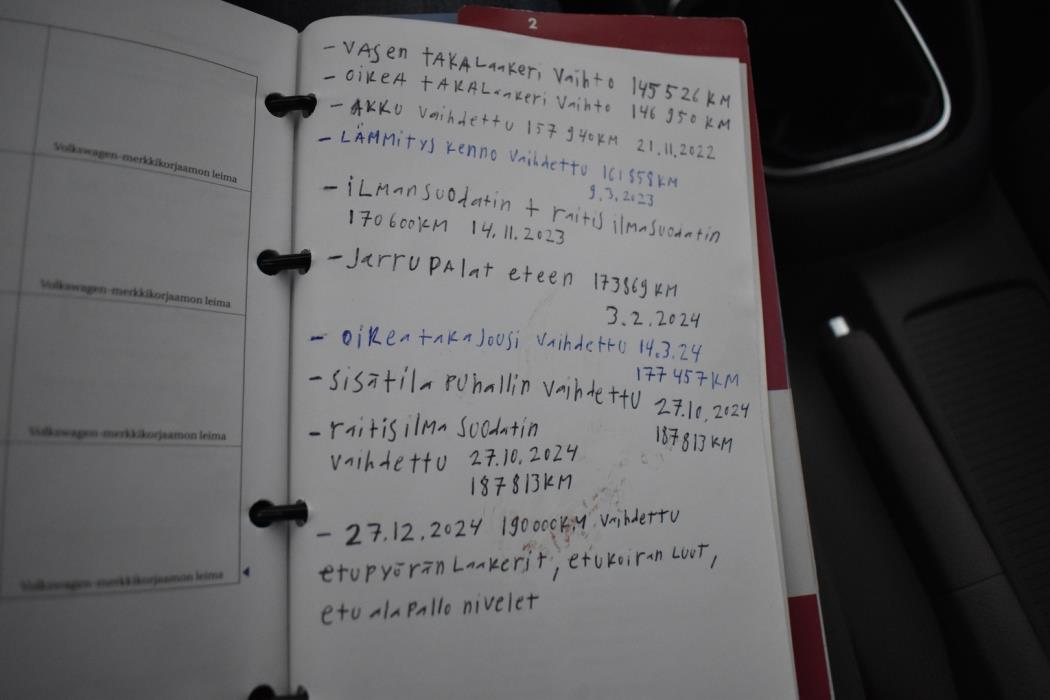 2
Volkswagen-merkkikorjaamon leima
Volkswagen-merkkikorjaamon leima
Volkswagen-merkkikorjaamon leima
Volkswagen-merkkikorjaamon leima
- VASEN TAKALAAKERI VAIHTO 145 526 KM
- OIKEA TAKALAAKERI VAIHTO 146 950 KM
- AKKU VAIHDETTU 157 940KM 21.11.2022
- LÄMMITYS KENNO VAIHDETTU 161858KM
9.3.2023
- ILMANSUODATIN + RAITIS ILMASUODATIN
170600KM 14.11.2023
- JARRUPALAT ETEEN 173869KM
3.2.2024
- OIKEA TAKAJOUSI VAIHDETTU 14.3.24
177457KM
- SISÄTILA PUHALLIN VAIHDETTU 27.10.2024
187813KM
- RAITISILMA SUODATIN
VAIHDETTU 27.10.2024
187813KM
- 27.12.2024 190000KM VAIHDETTU
ETUPYÖRÄN LAAKERIT, ETUKOIRAN LUUT,
ETU ALAPALLO NIVELET